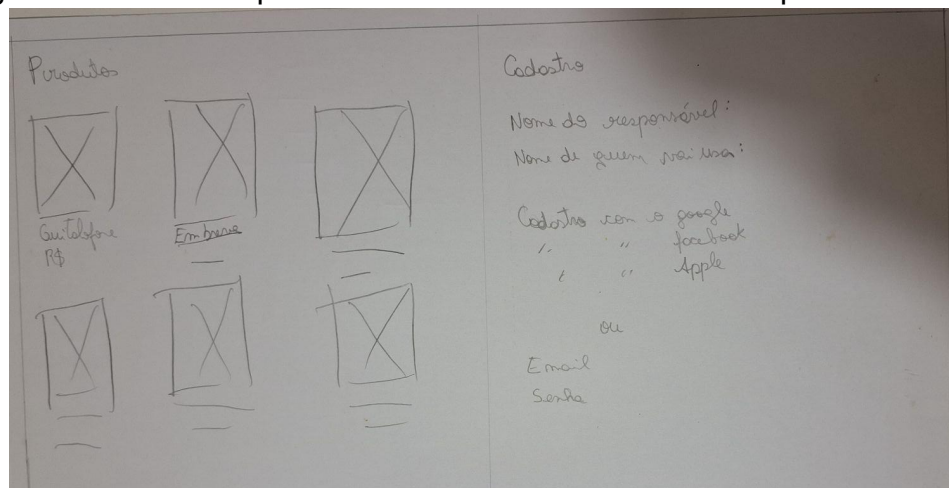 Produtos
Guitalofone
R$
Em breve
Cadastro
Nome do responsável:
Nome de quem vai usar:
Cadastro com o google
" " facebook
" " Apple
ou
Email
Senha